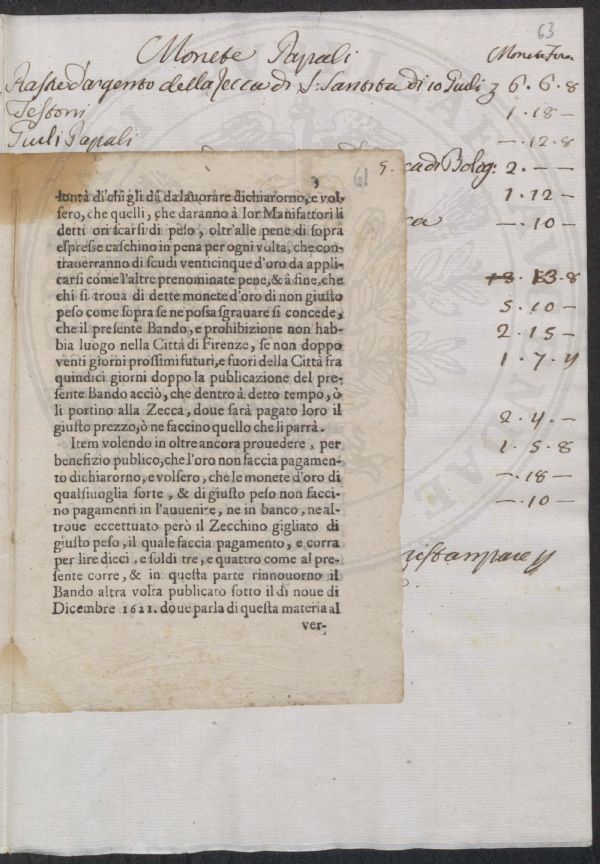 63
Monete Papali
Monete Fior.
Piastre d'argento della Zecca di S: Santita di 10 Giuli 3 6. 6. 8
Testoni 1. 18 —
Giuli Papali — . 12. 8
ca di Bolog: 2. — —
1. 12 —
— . 10 —
13. 8
5. 10 —
2. 15 —
1. 7. 4
2. 4. —
1. 5. 8
— . 18 —
— . 10 —
ristampare
61
lontà di chi gli dà da lauorare dichiarorno, e vol-
sero, che quelli, che daranno à lor Manifattori li
detti ori scarsi di peso, oltr'alle pene di sopra
espresse caschino in pena per ogni volta, che con-
trauerranno di scudi venticinque d'oro da appli-
carsi come l'altre prenominate pene, & à fine, che
chi si troua di dette monete d'oro di non giusto
peso come sopra se ne possa sgrauare si concede,
che il presente Bando, e prohibizione non hab-
bia luogo nella Città di Firenze, se non doppo
venti giorni prossimi futuri, e fuori della Città fra
quindici giorni doppo la publicazione del pre-
sente Bando acciò, che dentro à detto tempo, ò
li portino alla Zecca, doue sarà pagato loro il
giusto prezzo, ò ne faccino quello che li parrà.
Item volendo in oltre ancora prouedere, per
benefizio publico, che l'oro non faccia pagamen-
to dichiarorno, e volsero, che le monete d'oro di
qualsiuoglia sorte, & di giusto peso non facci-
no pagamenti in l'auuenire, ne in banco, ne al-
troue eccettuato però il Zecchino gigliato di
giusto peso, il quale faccia pagamento, e corra
per lire dieci, e soldi tre, e quattro come al pre-
sente corre, & in questa parte rinnouorno il
Bando altra volta publicato sotto il dì noue di
Dicembre 1621. doue parla di questa materia al
ver-